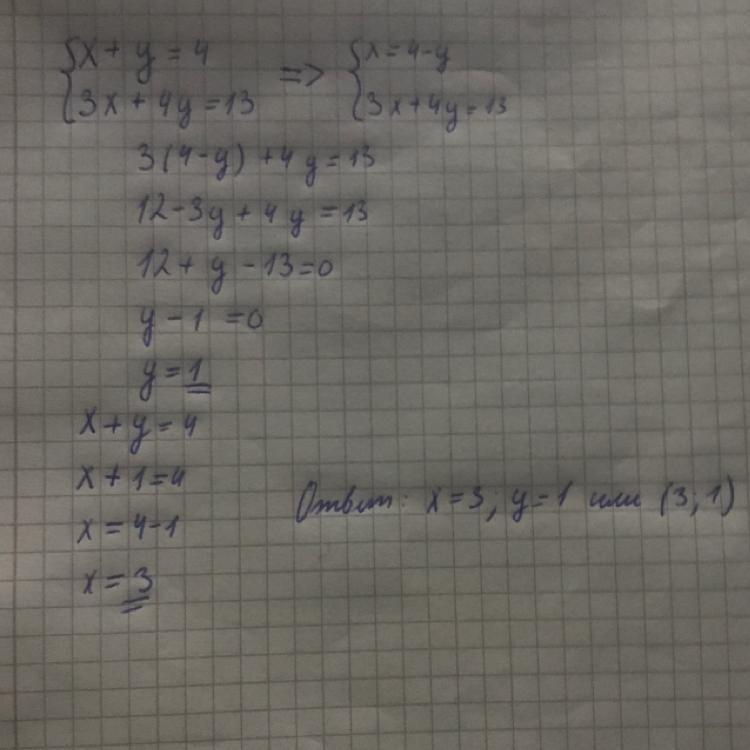 {x + y = 4 => {x = 4-y
{3x + 4y = 13 {3x + 4y = 13
3(4-y) + 4y = 13
12 - 3y + 4y = 13
12 + y - 13 = 0
y - 1 = 0
y = 1
x + y = 4
x + 1 = 4
x = 4-1
x = 3
Ответ: x = 3; y = 1 или (3; 1)